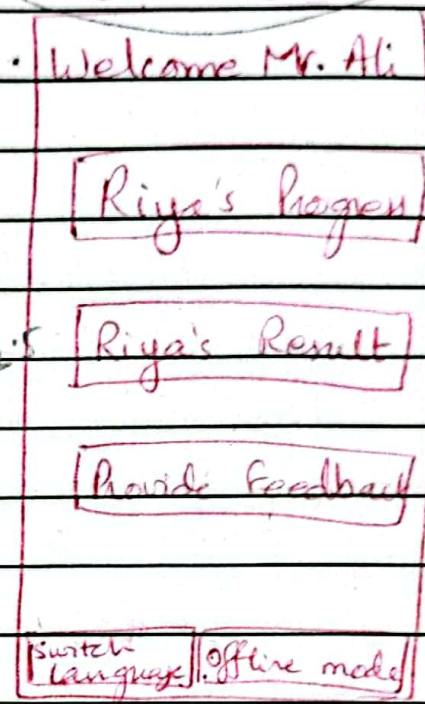 Welcome Mr. Ali
Riya's Progress
Riya's Result
Provide Feedback
Switch
Language
Offline mode